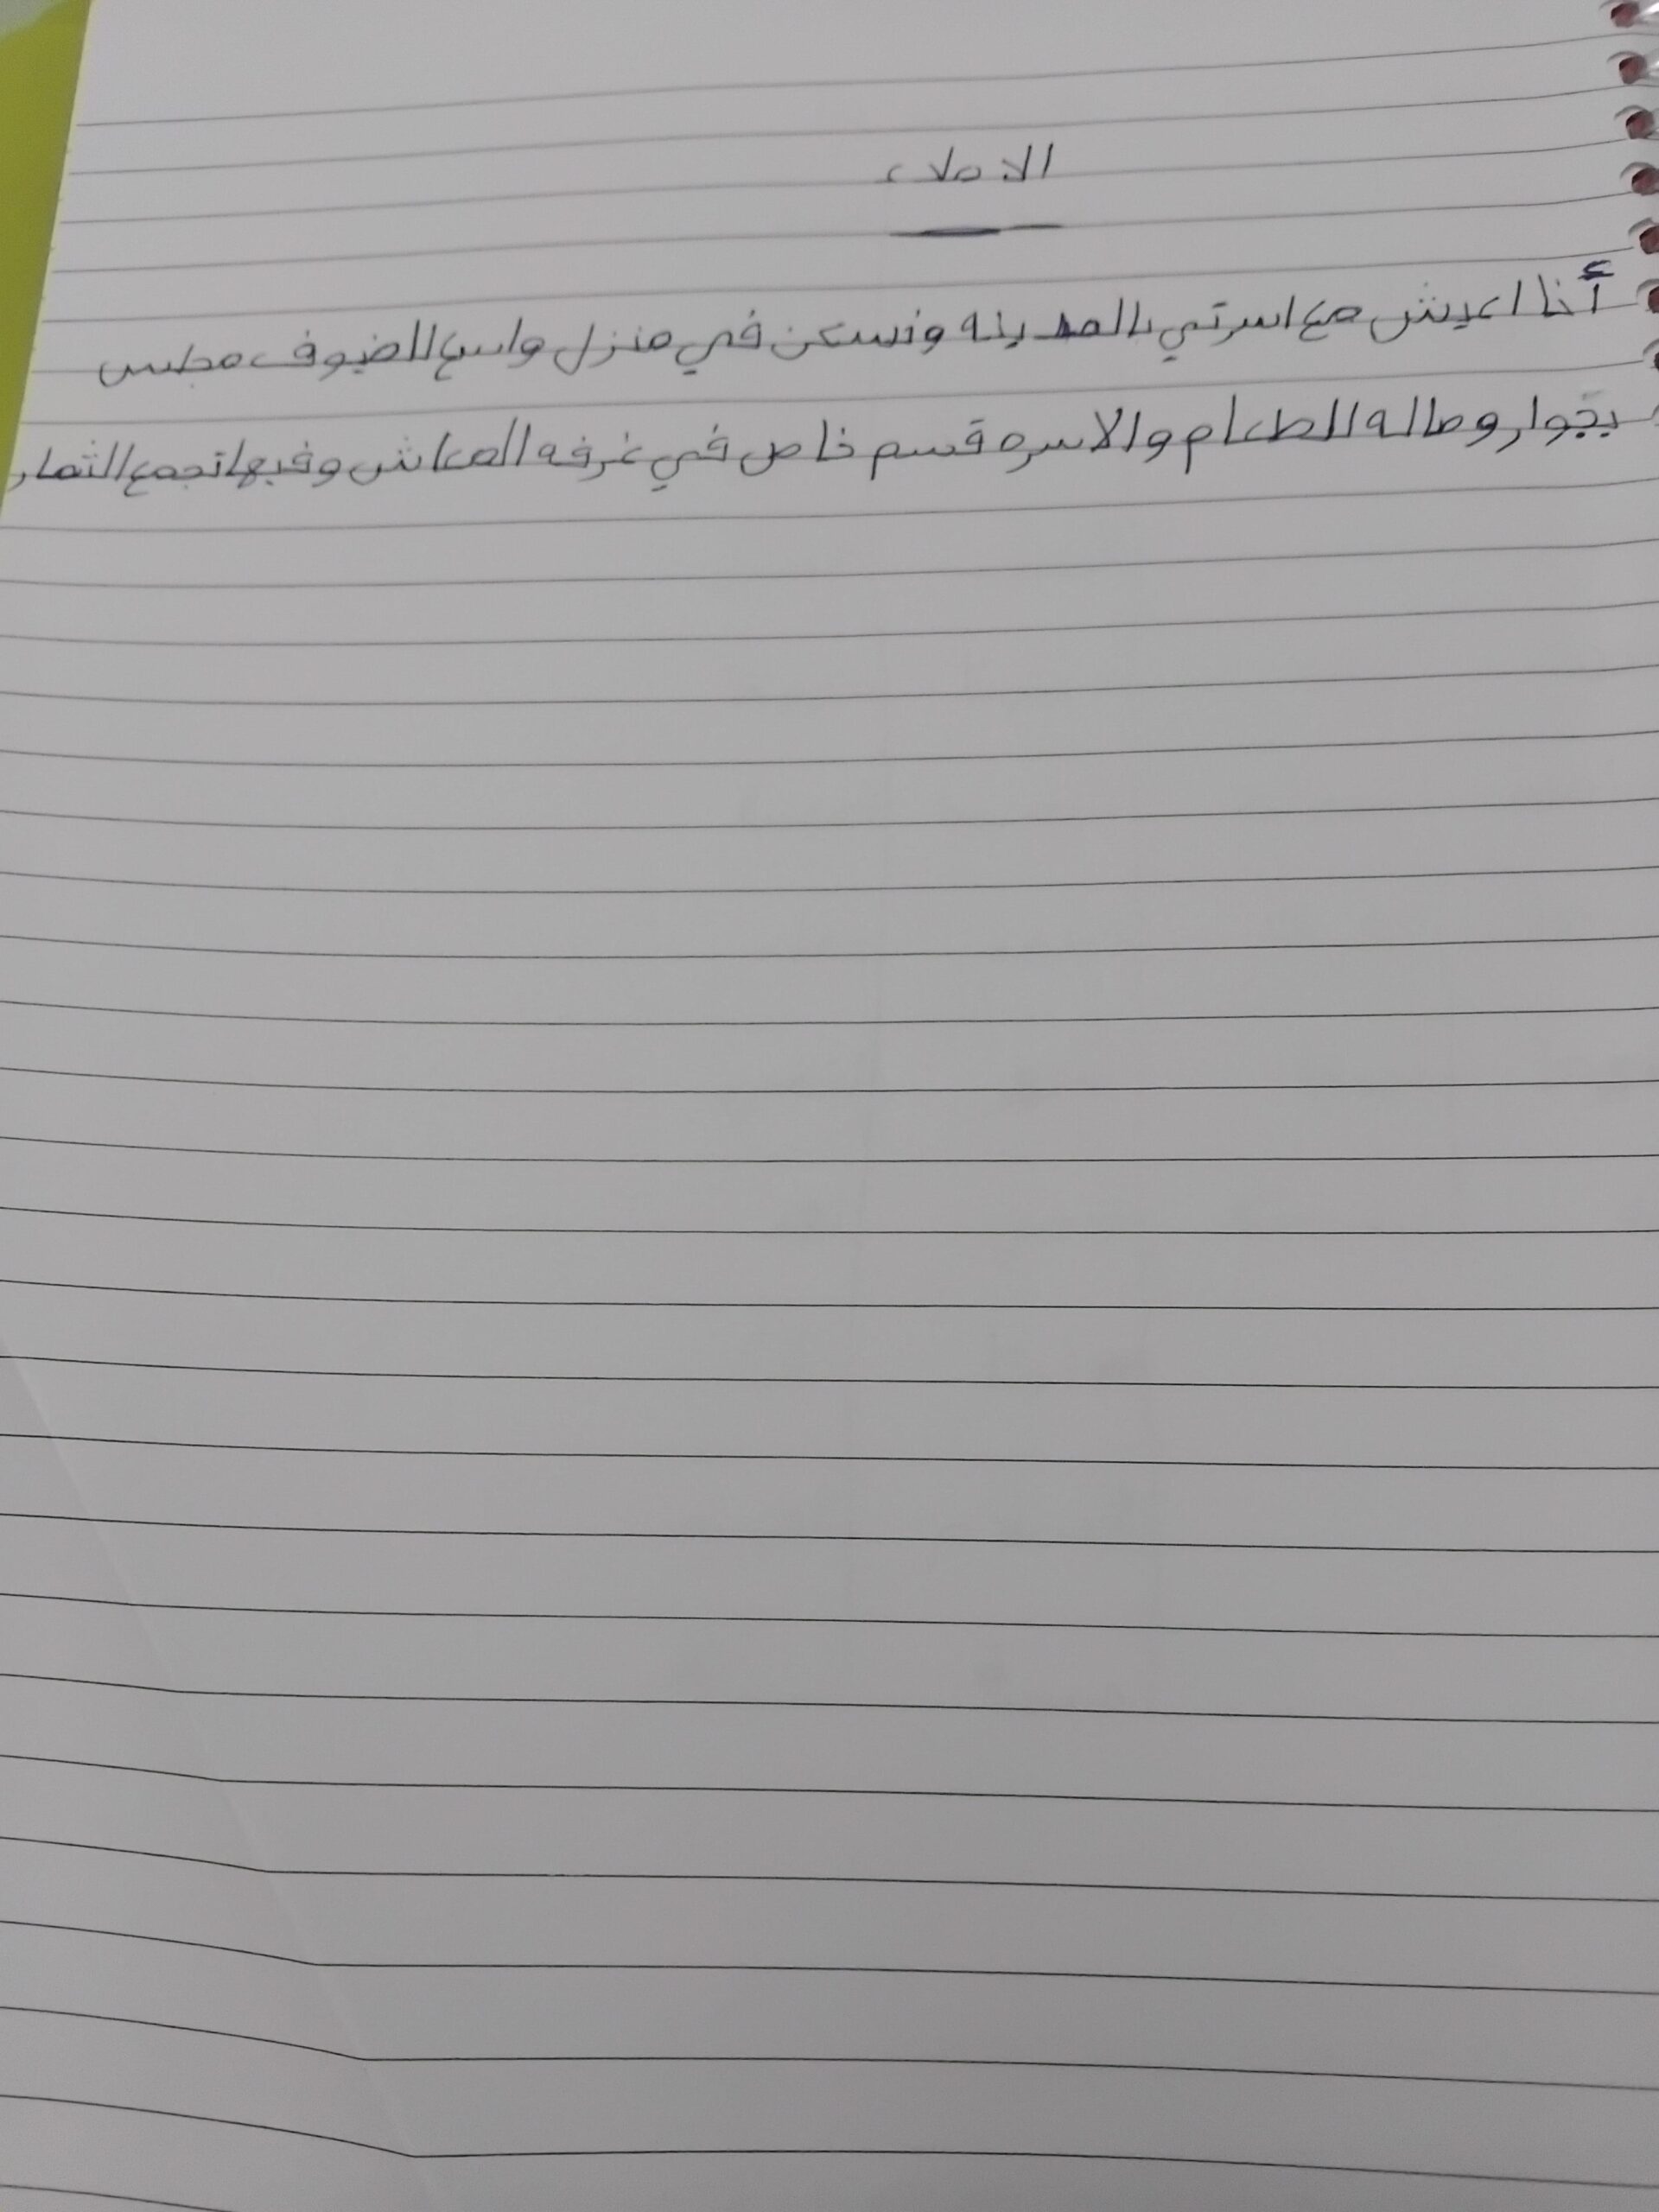 الاملاء
أنا اعيش مع اسرتي بالمدينه ونسكن في منزل واسع للضيوف مجلس
بجوار وصاله للطعام والاسره قسم خاص في غرفه المعاش وفيها تجمع الثمار